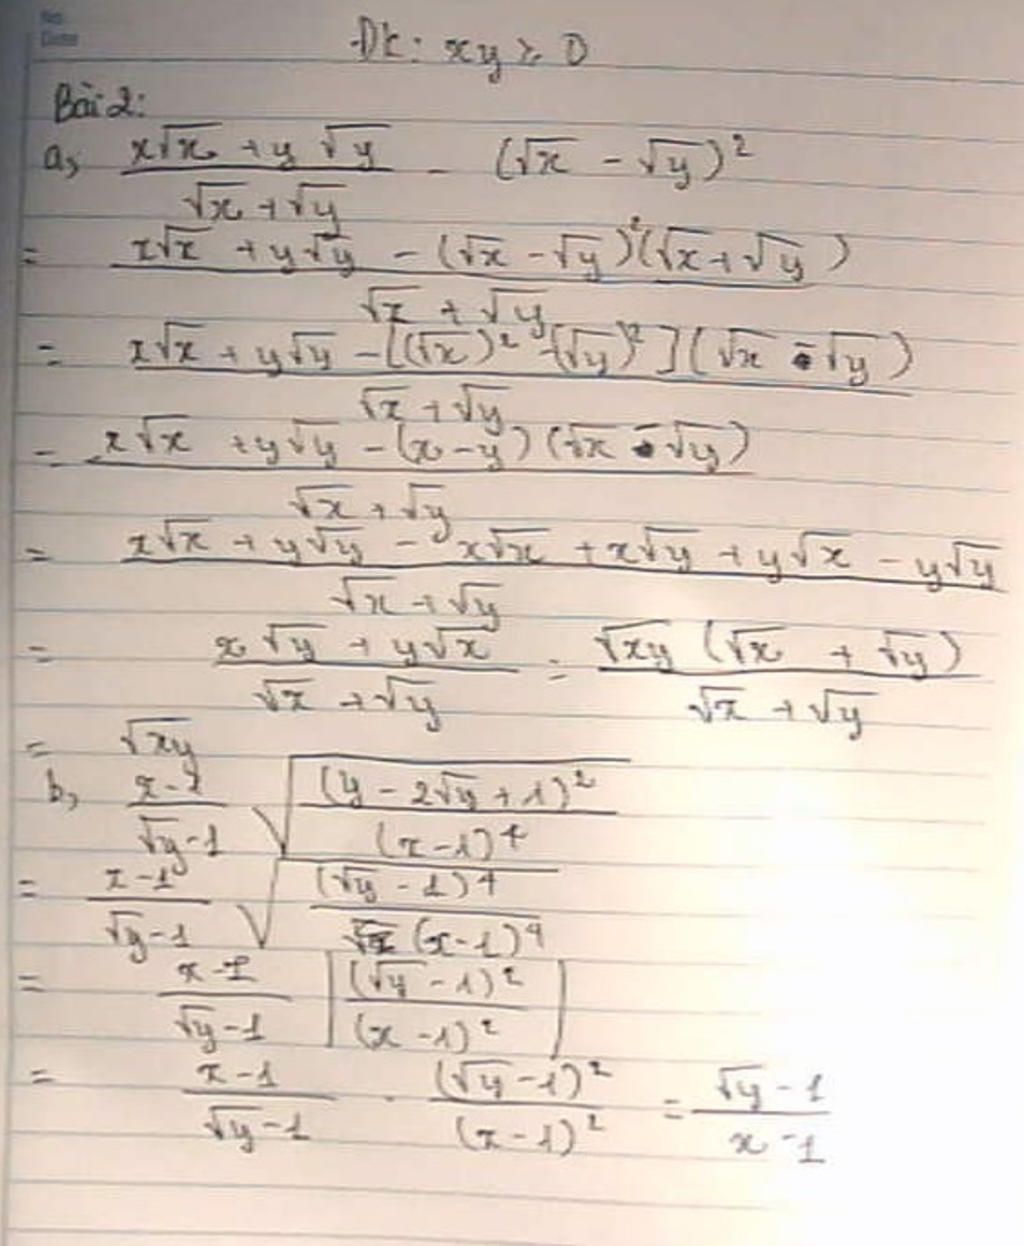 No.
Date
ĐK: xy ≥ 0
Bài 2:
a, (x√x + y√y)/(√x + √y) - (√x - √y)²
= (x√x + y√y - (√x - √y)²(√x + √y))/(√x + √y)
= (x√x + y√y - [(√x)² - (√y)²](√x - √y))/(√x + √y)
= (x√x + y√y - (x - y)(√x - √y))/(√x + √y)
= (x√x + y√y - x√x + x√y + y√x - y√y)/(√x + √y)
= (x√y + y√x)/(√x + √y) = (√xy (√x + √y))/(√x + √y)
= √xy
b, (x - 1)/(√y - 1) √((y - 2√y + 1)²/(x - 1)⁴)
= (x - 1)/(√y - 1) √((√y - 1)⁴/(x - 1)⁴)
= (x - 1)/(√y - 1) |(√y - 1)²/(x - 1)²|
= (x - 1)/(√y - 1) . (√y - 1)²/(x - 1)² = (√y - 1)/(x - 1)